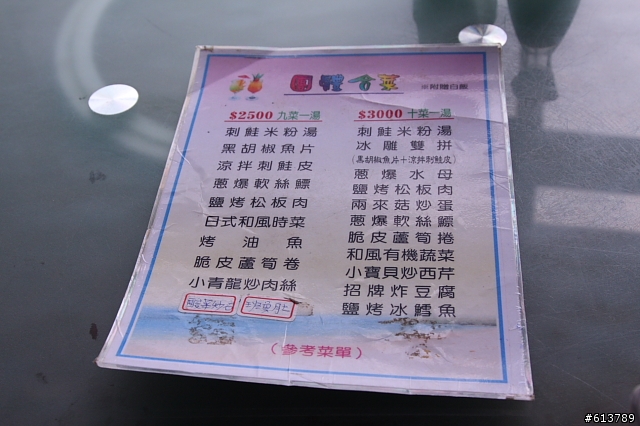 團體合菜 ※附贈白飯
$2500 九菜一湯
刺鮭米粉湯
黑胡椒魚片
涼拌刺鮭皮
蔥爆軟絲鰾
鹽烤松板肉
日式和風時菜
烤油魚
脆皮蘆筍卷
小青龍炒肉絲
$3000 十菜一湯
刺鮭米粉湯
冰雕雙拼
(黑胡椒魚片+涼拌刺鮭皮)
蔥爆水母
鹽烤松板肉
兩來菇炒蛋
蔥爆軟絲鰾
脆皮蘆筍捲
和風有機蔬菜
小寶貝炒西芹
招牌炸豆腐
鹽烤冰鱈魚
(參考菜單)
#613789